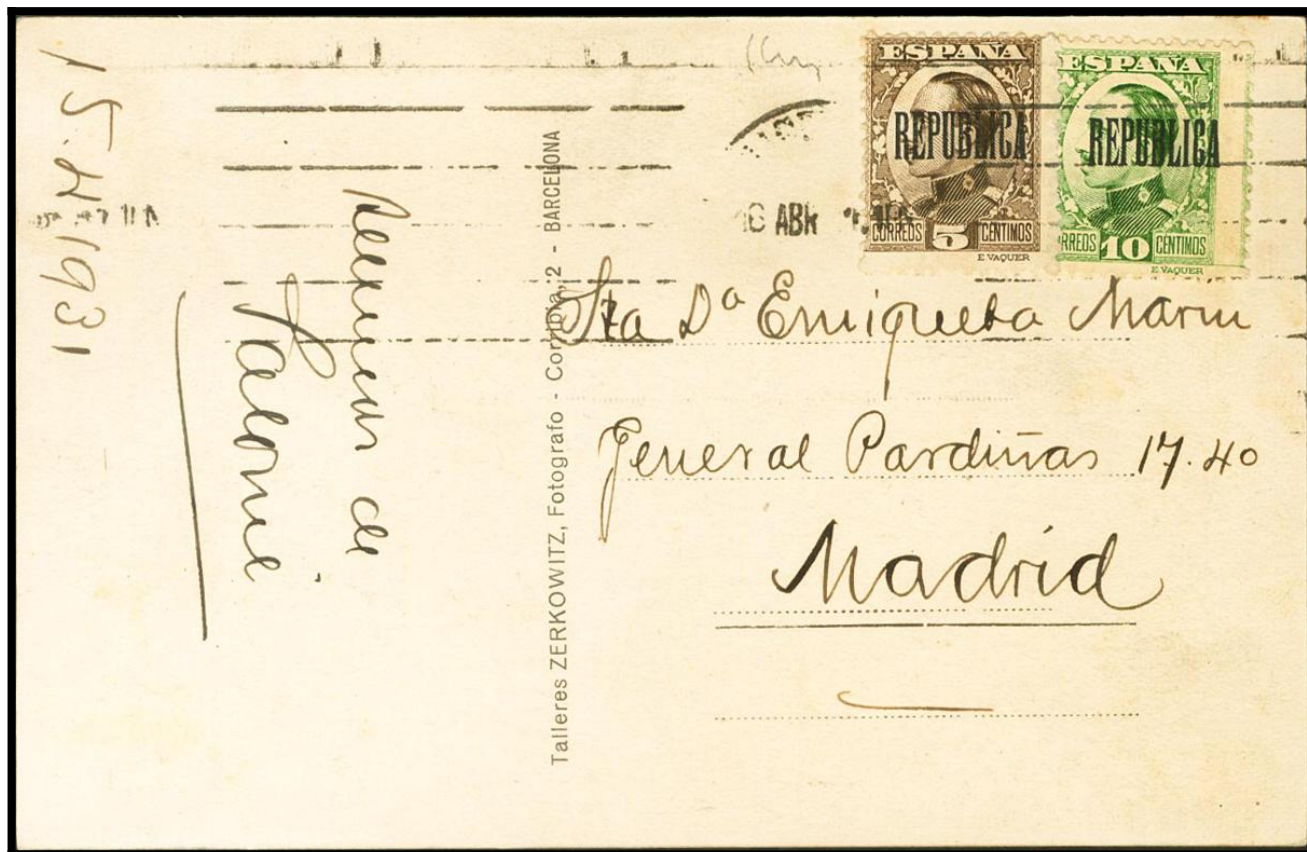 15.4.1931
Recuerdos de
Talleres ZERKOWITZ, Fotografo - Corribia, 2 - BARCELONA
ESPAÑA
REPUBLICA
CORREOS 5 CENTIMOS
E. VAQUER
ESPAÑA
REPUBLICA
CORREOS 10 CENTIMOS
E. VAQUER
16 ABR
Sta Dª Enriqueta Marin
General Pardiñas 17.4º
Madrid